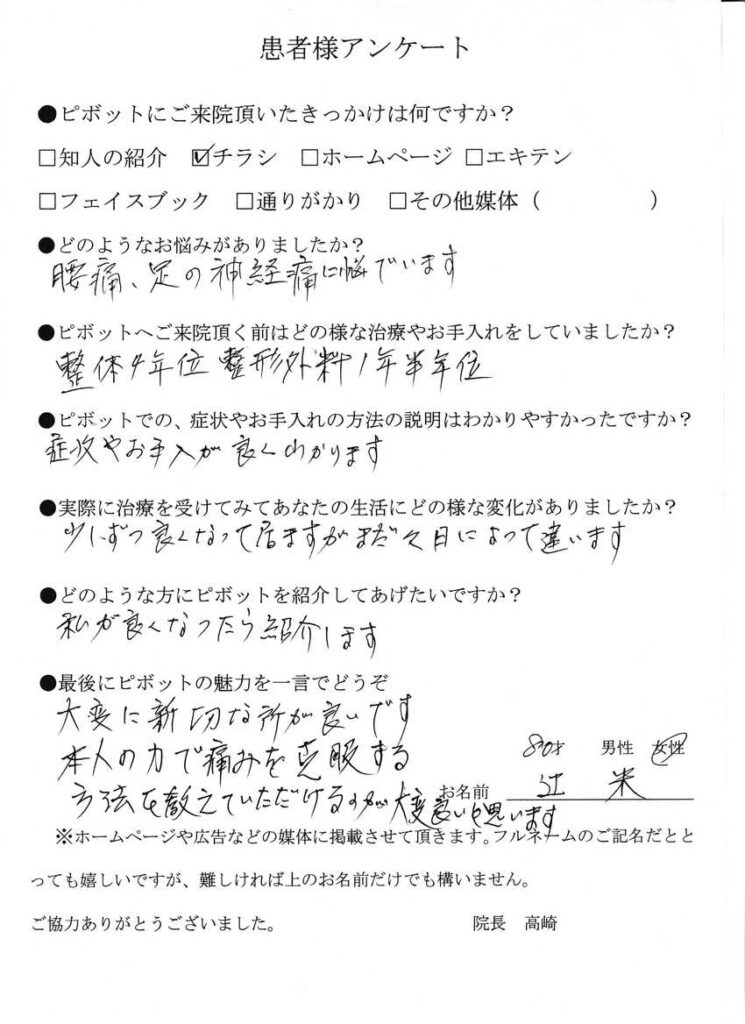 患者様アンケート
●ピボットにご来院頂いたきっかけは何ですか？
□知人の紹介 ☑チラシ □ホームページ □エキテン
□フェイスブック □通りがかり □その他媒体（ ）
●どのようなお悩みがありましたか？
腰痛、足の神経痛に悩でいます
●ピボットへご来院頂く前はどの様な治療やお手入れをしていましたか？
整体4年位 整形外科1年半年位
●ピボットでの、症状やお手入れの方法の説明はわかりやすかったですか？
症状やお手入が良くわかります
●実際に治療を受けてみてあなたの生活にどの様な変化がありましたか？
少しずつ良くなって居ますがまだ々日によって違います
●どのような方にピボットを紹介してあげたいですか？
私が良くなったら紹介します
●最後にピボットの魅力を一言でどうぞ
大変に新切な所が良いです
本人の力で痛みを克服する
80才 男性 女性
お名前 辻 米
方法を教えていただけるのが大変良いと思います
※ホームページや広告などの媒体に掲載させて頂きます。フルネームのご記名だとと
っても嬉しいですが、難しければ上のお名前だけでも構いません。
ご協力ありがとうございました。 院長 高崎